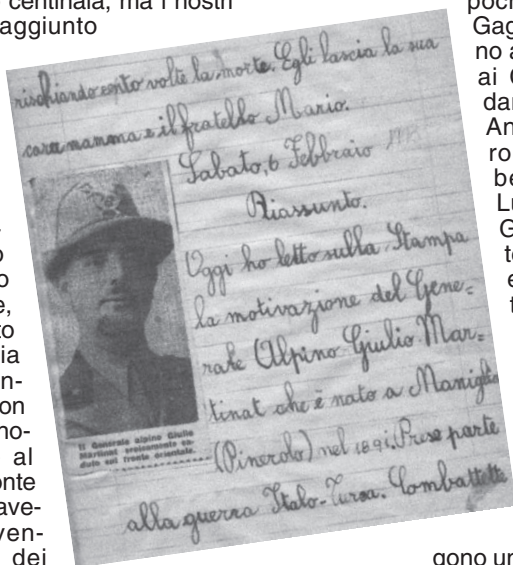 centinaia, ma i nostri
aggiunto
o
o
e,
to
ia
n-
on
no-
al
onte
ave-
ven-
dei
rischiando cento volte la morte. Egli lascia la sua
cara mamma e il fratello Mario.
Sabato, 6 Febbraio
Riassunto.
Oggi ho letto sulla Stampa
la motivazione del Gene=
rale Alpino Giulio Mar=
tinat che è nato a Maniglia
(Pinerolo) nel 1891. Prese parte
alla guerra Italo-Turca. Combattette
Il Generale alpino Giulio
Martinat eroicamente ca-
duto sul fronte orientale.
poch
Gag
no a
ai
dar
An
ro
be
Lu
G
t
e
t
gono un